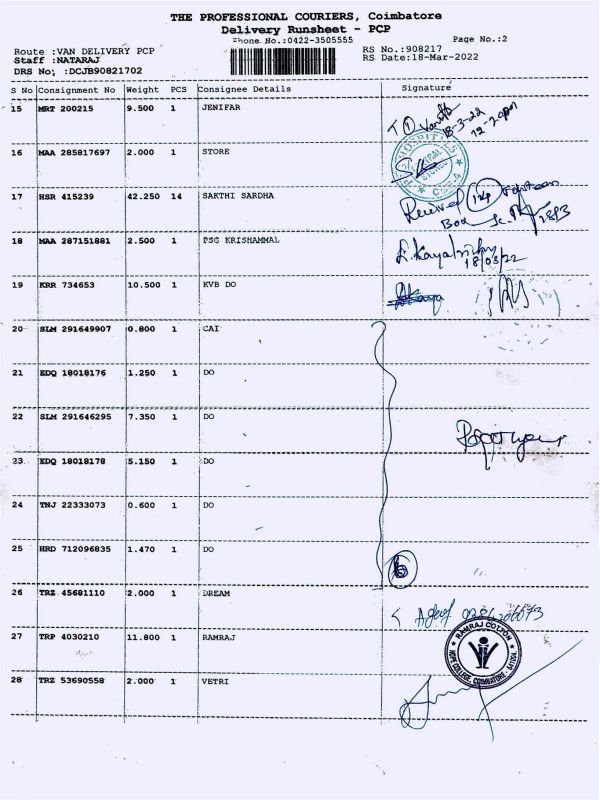 THE PROFESSIONAL COURIERS, Coimbatore
Delivery Runsheet - PCP
Phone No.:0422-3505555
Page No.:2
Route :VAN DELIVERY PCP
RS No.:908217
Staff :NATARAJ
RS Date:18-Mar-2022
DRS No; :DCJB90821702
S No Consignment No Weight PCS Consignee Details Signature
15 MRT 200215 9.500 1 JENIFAR
18-3-22
12-20pm
16 MAA 285817697 2.000 1 STORE
17 HSR 415239 42.250 14 SAKTHI SARDHA
Received 14
Box
18 MAA 287151881 2.500 1 PSG KRISHAMMAL
18/03/22
19 KRR 734653 10.500 1 KVB DO
20 SLM 291649907 0.800 1 CAI
21 EDQ 18018176 1.250 1 DO
22 SLM 291646295 7.350 1 DO
23 EDQ 18018178 5.150 1 DO
24 TNJ 22333073 0.600 1 DO
25 HRD 712096835 1.470 1 DO
6
26 TRZ 45681110 2.000 1 DREAM
27 TRP 4030210 11.800 1 RAMRAJ
RAMRAJ COTTON
HOPE COLLEGE, COIMBATORE - 641004
28 TRZ 53690558 2.000 1 VETRI